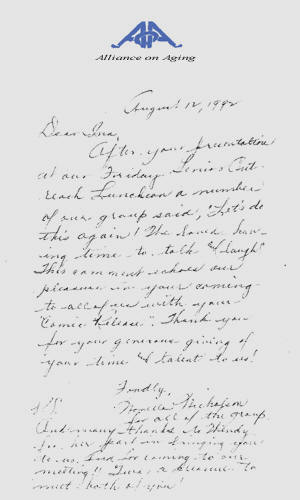 Alliance on Aging
August 12, 1992
Dear Ina,
After your presentation
at our Friday Seniors Out-
reach Luncheon a number
of our group said, "Let's do
this again! We loved hav-
ing time to talk & laugh"
This comment echoes our
pleasure in your coming
to all of us with your
"Comic Release". Thank you
for your generous giving of
your time & talent to us!
Fondly,
Nicholson
for all of the group
P.S.
And many thanks to Wendy
for her part in bringing you
to us. And for coming to our
meeting!! Twas a pleasure to
meet both of you!